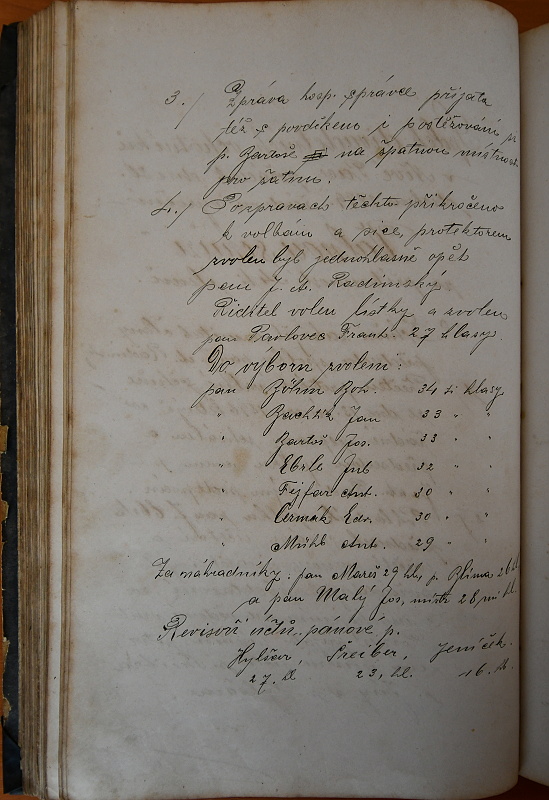 3./ Zpráva hosp. správce přijata
též s povděkem i postěžování
p. Bartoše na špatnou místnost
pro šatnu.
4./ Po zprávach těchto přikročeno
k volbám a sice, protektorem
zvolen byl jednohlasně opět
pan J. A. Radimský
Ředitel volen lístky a zvolen
pan Pavlovec Frant. 27 hlasy.
Do výboru zvoleni:
pan Böhm Boh. 34 ti hlasy
" Bachtík Jan 33 " "
" Bartoš Jos. 33 " "
" Eberle Jul 32 " "
" Fejfar Ant. 30 " "
" Čermák Edv. 30 " "
" Mühl Ant. 29 " "
Za náhradníky: pan Mareš 29 hl, p. Blima 28 hl
a pan Malý Jos, mistr 28 mi hl.
Revisoři účtů pánové p.
Hylšar, Šreiber, Jeníček.
27. hl 23, hl. 16. hl.